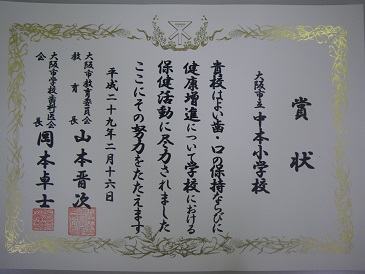 賞状
大阪市立 中本小学校
貴校はよい歯・口の保持ならびに
健康増進について学校における
保健活動に尽力されました
ここにその努力をたたえます
平成二十九年二月十六日
大阪市教育委員会
教育長 山本晋次
大阪市学校歯科医会
会長 岡本卓士